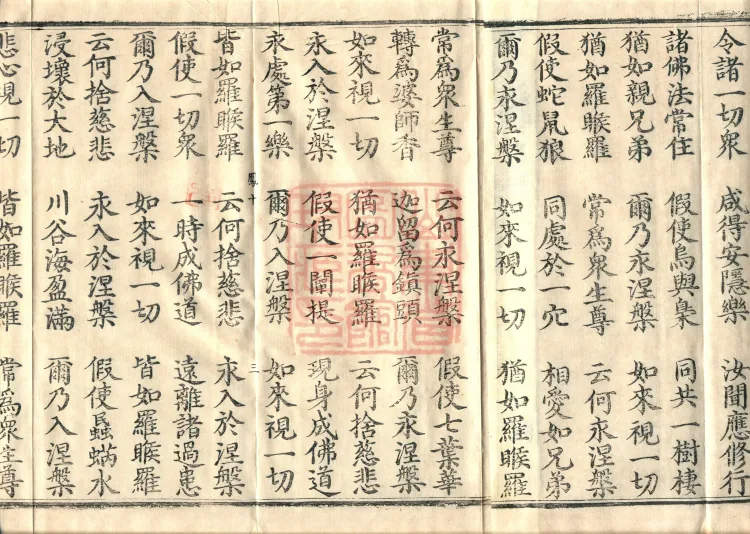 令諸一切衆 咸得安隱樂 汝聞應修行
諸佛法常住 假使烏與梟 同共一樹棲
猶如親兄弟 爾乃永涅槃 如來視一切
猶如羅睺羅 常爲衆生尊 云何永涅槃
假使蛇鼠狼 同處於一穴 相愛如兄弟
爾乃永涅槃 如來視一切 猶如羅睺羅
常爲衆生尊 云何永涅槃 假使七葉華
轉爲婆師香 迦留爲鎮頭 爾乃永涅槃
如來視一切 猶如羅睺羅 云何捨慈悲
永入於涅槃 假使一闡提 現身成佛道
永處第一樂 爾乃入涅槃 如來視一切
鳳十 三
皆如羅睺羅 云何捨慈悲 永入於涅槃
假使一切衆 一時成佛道 遠離諸過患
爾乃入涅槃 如來視一切 皆如羅睺羅
云何捨慈悲 永入於涅槃 假使水
浸壞於大地 川谷海盈滿 爾乃入涅槃
悲心視一切 皆如羅睺羅 常爲衆生尊